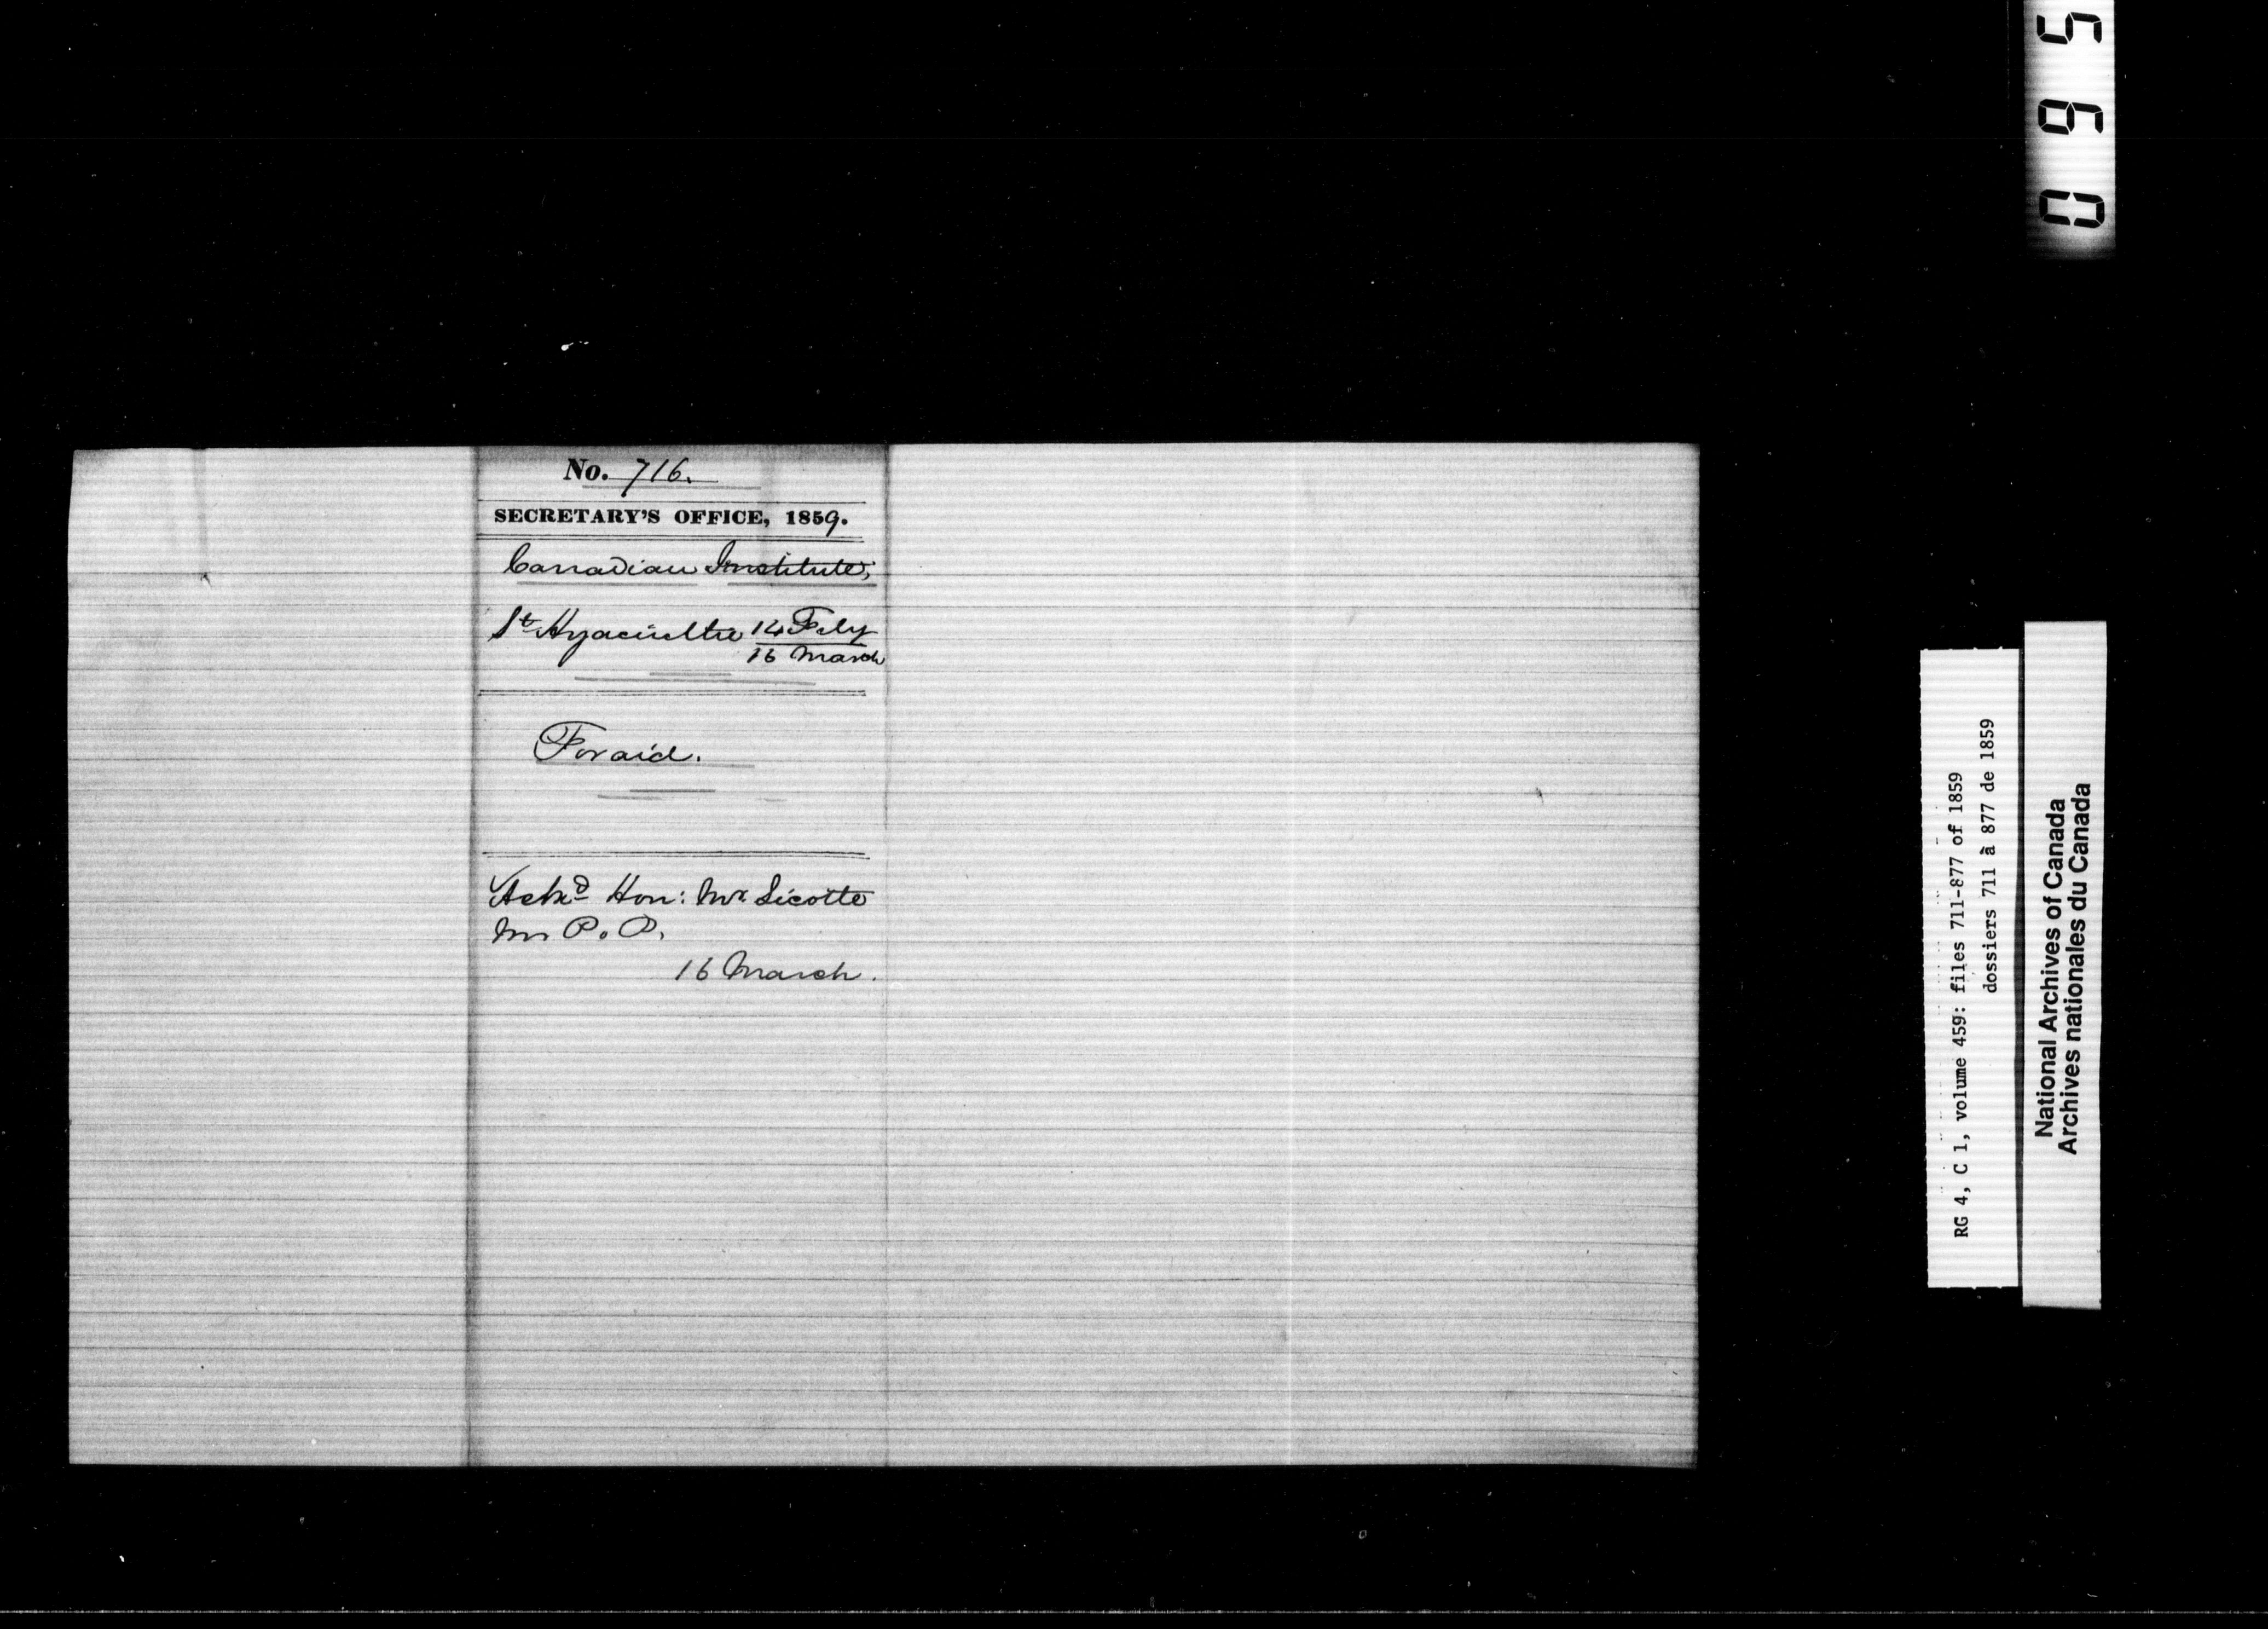 No. 716.
SECRETARY'S OFFICE, 1859.
Canadian Institute,
St Hyacinthe 14 Feby
16 March
For aid.
Ackd Hon: Mr. Sicotte
M. P. P.
16 March.
RG 4, C 1, volume 459: files 711-877 of 1859
dossiers 711 à 877 de 1859
National Archives of Canada
Archives nationales du Canada
0 6 5